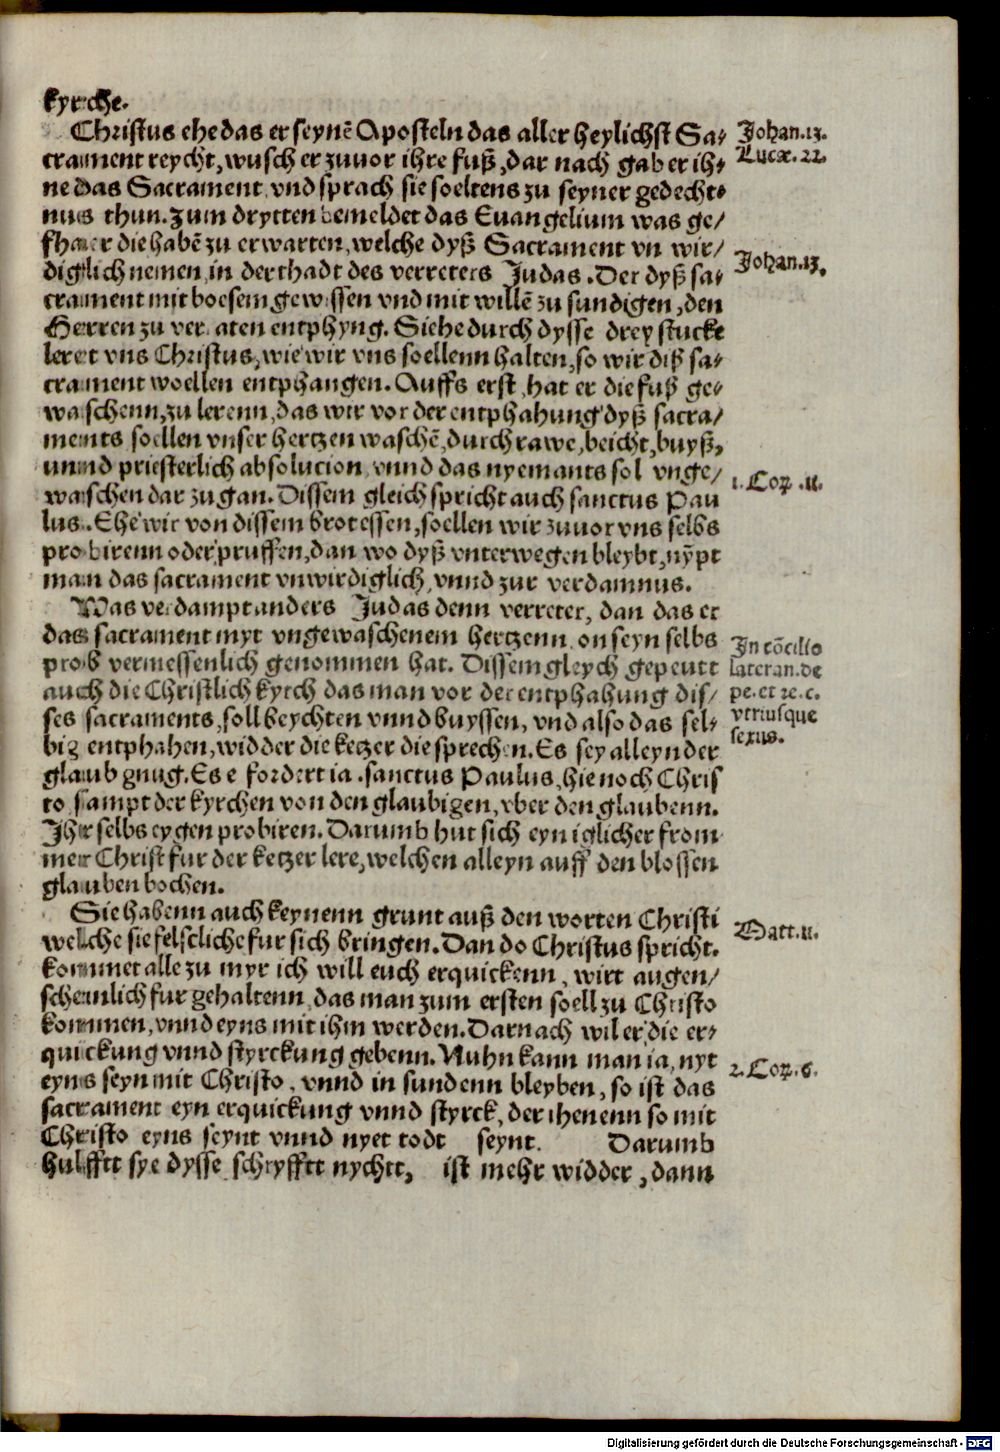 kyrche.
Christus ehe das er seynē Aposteln das aller heylichst Sa-
crament reycht, wusch er zuuor ihre fuß, dar nach gab er ih-
ne das Sacrament vnd sprach sie soeltens zu seyner gedecht-
nus thun. Zum drytten bemeldet das Euangelium was ge/
fhaer die habē zu erwarten, welche dyß Sacrament vn wir/
diglich nemen, in der thadt des verreters Judas. Der dyß sa-
crament mit boesem gewissen vnd mit willē zu sundigen, den
Herren zu verraten entphyng. Siehe durch dysse drey stucke
leret vns Christus, wie wir vns soellenn halten, so wir diß sa-
crament woellen entphangen. Auffs erst hat er die fuß ge-
waschenn, zu lerenn, das wir vor der entphahung dyß sacra/
ments soellen vnser hertzen waschē, durch rawe, beicht, buyß,
unnd priesterlich absolucion vnnd das nyemants sol vnge/
waschen dar zu gan. Dissem gleich spricht auch sanctus Pau
lus. Ehe wir von dissem brot essen, soellen wir zuuor vns selbs
probirenn oder pruffen, dan wo dyß vnterwegen bleybt, nȳpt
man das sacrament vnwirdiglich, vnnd zur verdamnus.
Was verdampt anders Judas denn verreter, dan das er
das sacrament myt vngewaschenem hertzenn on seyn selbs
prob vermessenlich genommen hat. Dissem gleych gepeutt
auch die Christlich kyrch das man vor der entphahung dis/
ses sacraments, soll beychten vnnd buyssen, vnd also das sel-
big entphahen, widder die ketzer die sprechen. Es sey alleyn der
glaub gnug. Es e fordert ia sanctus Paulus, hie noch Chris
to sampt der kyrchen von den glaubigen, vber den glaubenn.
Ihr selbs eygen probiren. Darumb hut sich eyn iglicher from
mer Christ fur der ketzer lere, welchen alleyn auff den blossen
glauben bochen.
Sie habenn auch keynenn grunt auß den worten Christi
welche sie felscliche fur sich bringen. Dan do Christus spricht.
kommet alle zu myr ich will euch erquickenn, wirt augen/
scheinlich fur gehaltenn das man zum ersten soell zu Christo
kommen, vnnd eyns mit ihm werden. Darnach wil er die er-
quickung vnnd styrckung gebenn. Nuhn kann man ia, nyt
eyns seyn mit Christo, vnnd in sundenn bleyben, so ist das
sacrament eyn erquickung vnnd styrck, der ihenenn so mit
Christo eyns seynt vnnd nyet todt seynt. Darumb
hulfftt sye dysse schryfftt nychtt, ist mehr widder, dann
Johan. 13.
Lucæ. 22.
Johan. 13.
1. Cor. 11.
In cōcilio
lateran. de
pe. et re. c.
vtriusque
sexus.
Matt. 11.
2. Cor. 6.
Digitalisierung gefördert durch die Deutsche Forschungsgemeinschaft - DFG